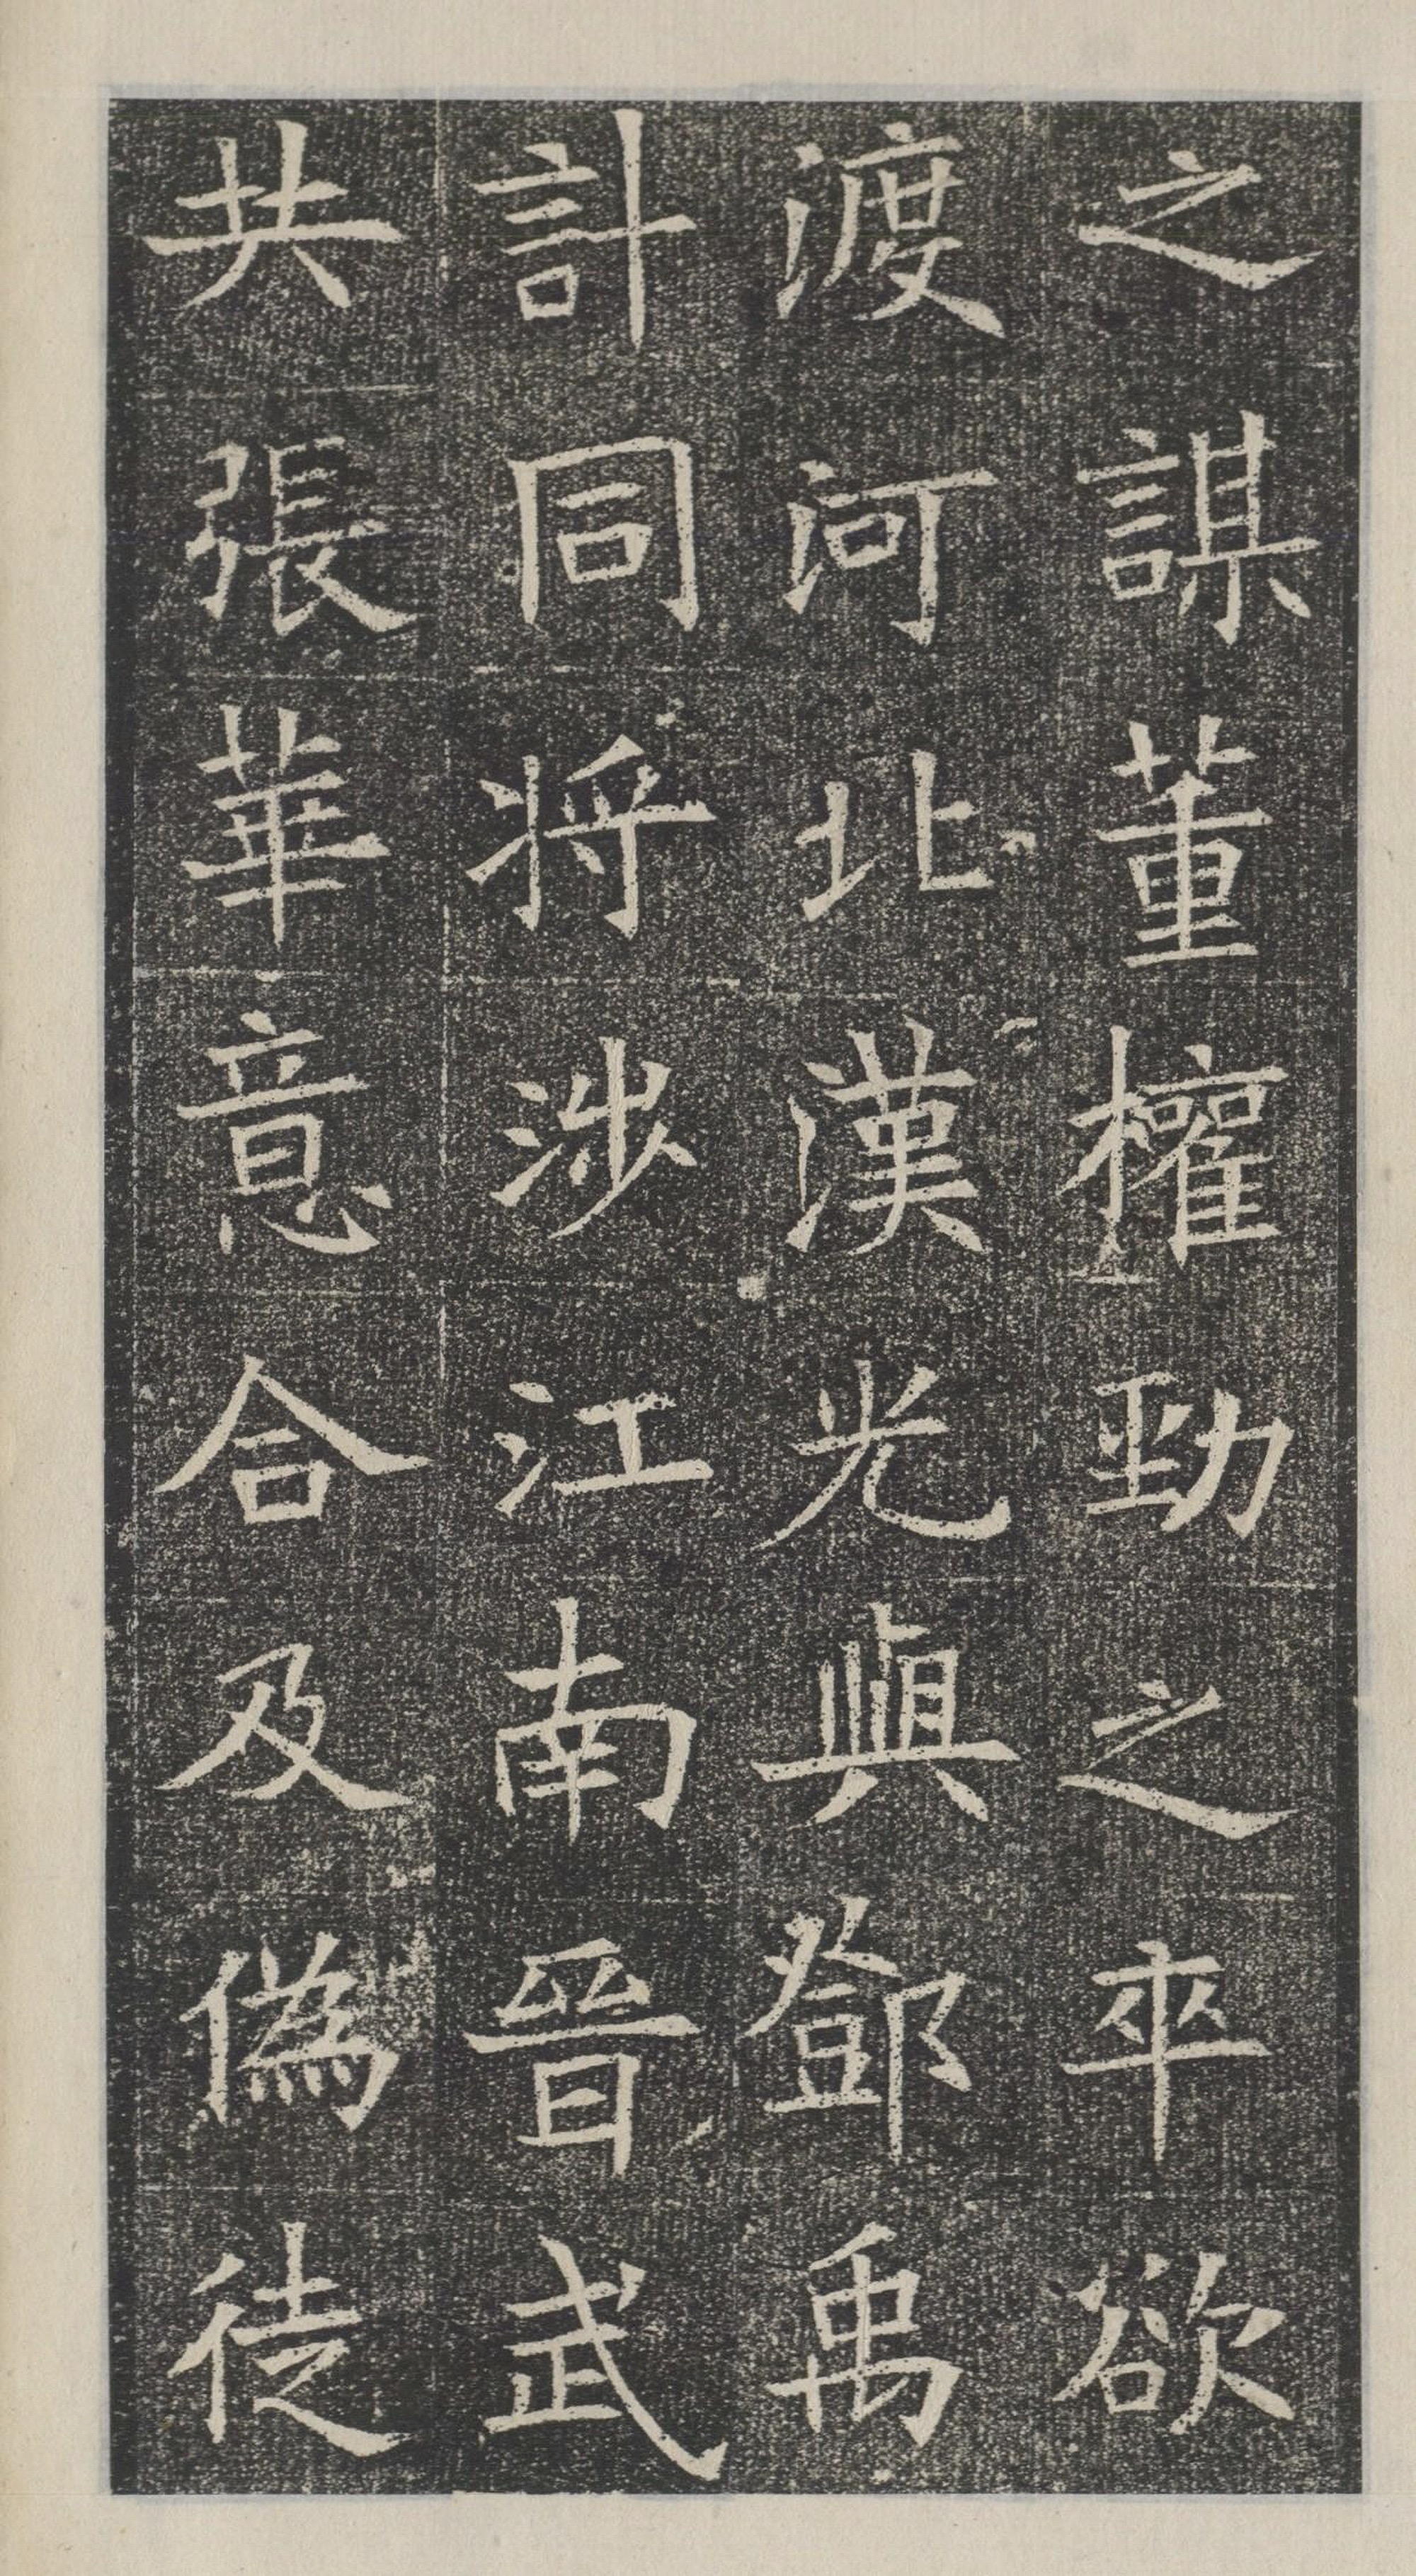 之謀董權勁之卒欲
渡河北漢光與鄧禹
計同將涉江南晉武
共張華意合及偽徒